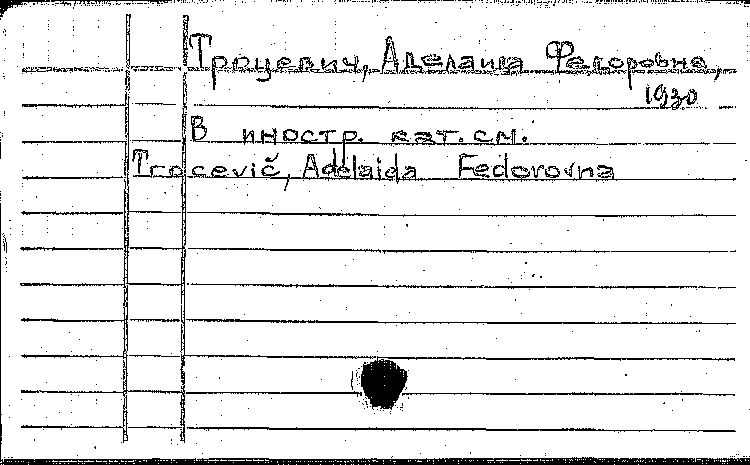 Троцевич, Аделаида Федоровна,
1930
В иностр. кат. см.
Trocevič, Adelaida Fedorovna